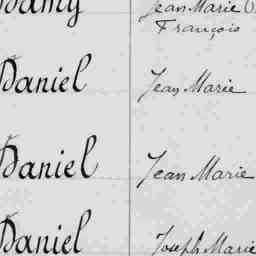 Jean Marie
François
Daniel Jean Marie
Daniel Jean Marie
Daniel Joseph Marie